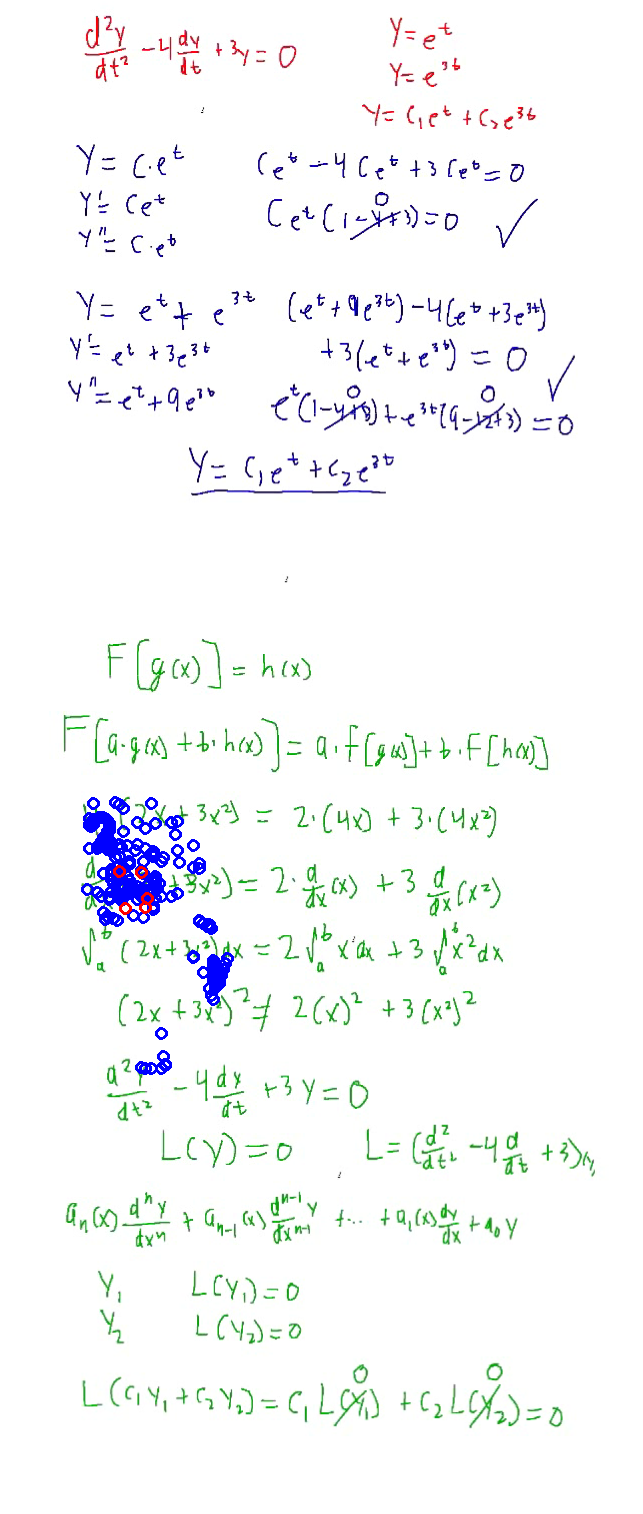 d²y/dt² - 4 dy/dt + 3y = 0
y = e^t
y = e^3t
y = C₁e^t + C₂e^3t
y = C·e^t
Ce^t - 4Ce^t + 3Ce^t = 0
y' = Ce^t
Ce^t(1-4+3) = 0 ✓
0
y'' = C·e^t
y = e^t + e^3t
(e^t + 9e^3t) - 4(e^t + 3e^3t)
y' = e^t + 3e^3t
+3(e^t + e^3t) = 0 ✓
y'' = e^t + 9e^3t
e^t(1-4+3) + e^3t(9-12+3) = 0
0 0
y = C₁e^t + C₂e^3t
F[g(x)] = h(x)
F[a·g(x) + b·h(x)] = a·F[g(x)] + b·F[h(x)]
(2x + 3x²) = 2·(4x) + 3·(4x²)
+ 3x²) = 2·d/dx(x) + 3 d/dx(x²)
∫_a^b (2x + 3x²)dx = 2∫_a^b x dx + 3∫_a^b x²dx
(2x + 3x²)² ≠ 2(x)² + 3(x²)²
d²y/dt² - 4 dy/dt + 3y = 0
L(y) = 0
L = (d²/dt² - 4 d/dt + 3)
aₙ(x) dⁿy/dxⁿ + aₙ₋₁(x) dⁿ⁻¹y/dxⁿ⁻¹ + ... + a₁(x) dy/dx + a₀y
y₁ L(y₁) = 0
y₂ L(y₂) = 0
L(C₁y₁ + C₂y₂) = C₁L(y₁) + C₂L(y₂) = 0
0 0